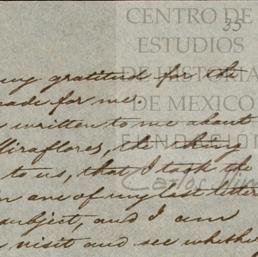 CENTRO DE
35
ESTUDIOS
DE HISTORIA
DE MEXICO
FUNDACION
Carlos Slim
my gratitude for the
made for me.
written to me about
Miraflores, the thing
to us, that I took the
in one of my last letter
subject, and I am
visit and see whether